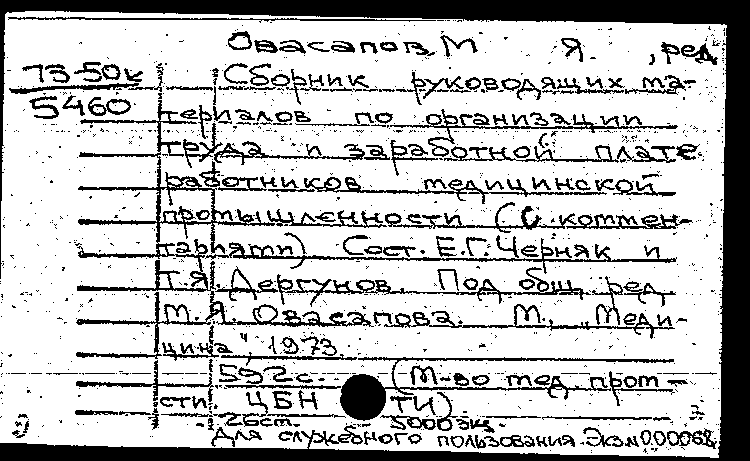 Овасапов М Я. , ред
73-50к
5460
Сборник руководящих ма-
териалов по организации
труда и заработной плате
работников медицинской
промышленности (С коммен-
тариями) Сост. Е.Г. Черняк и
Т.Я. Дергунов. Под общ. ред.
М.Я. Овасапова. М., „Меди-
цина", 1973.
592с. (М-во мед. пром-
сти. ЦБН ТИ).
26см. 5000 экз.
Для служебного пользования. Экз№000068